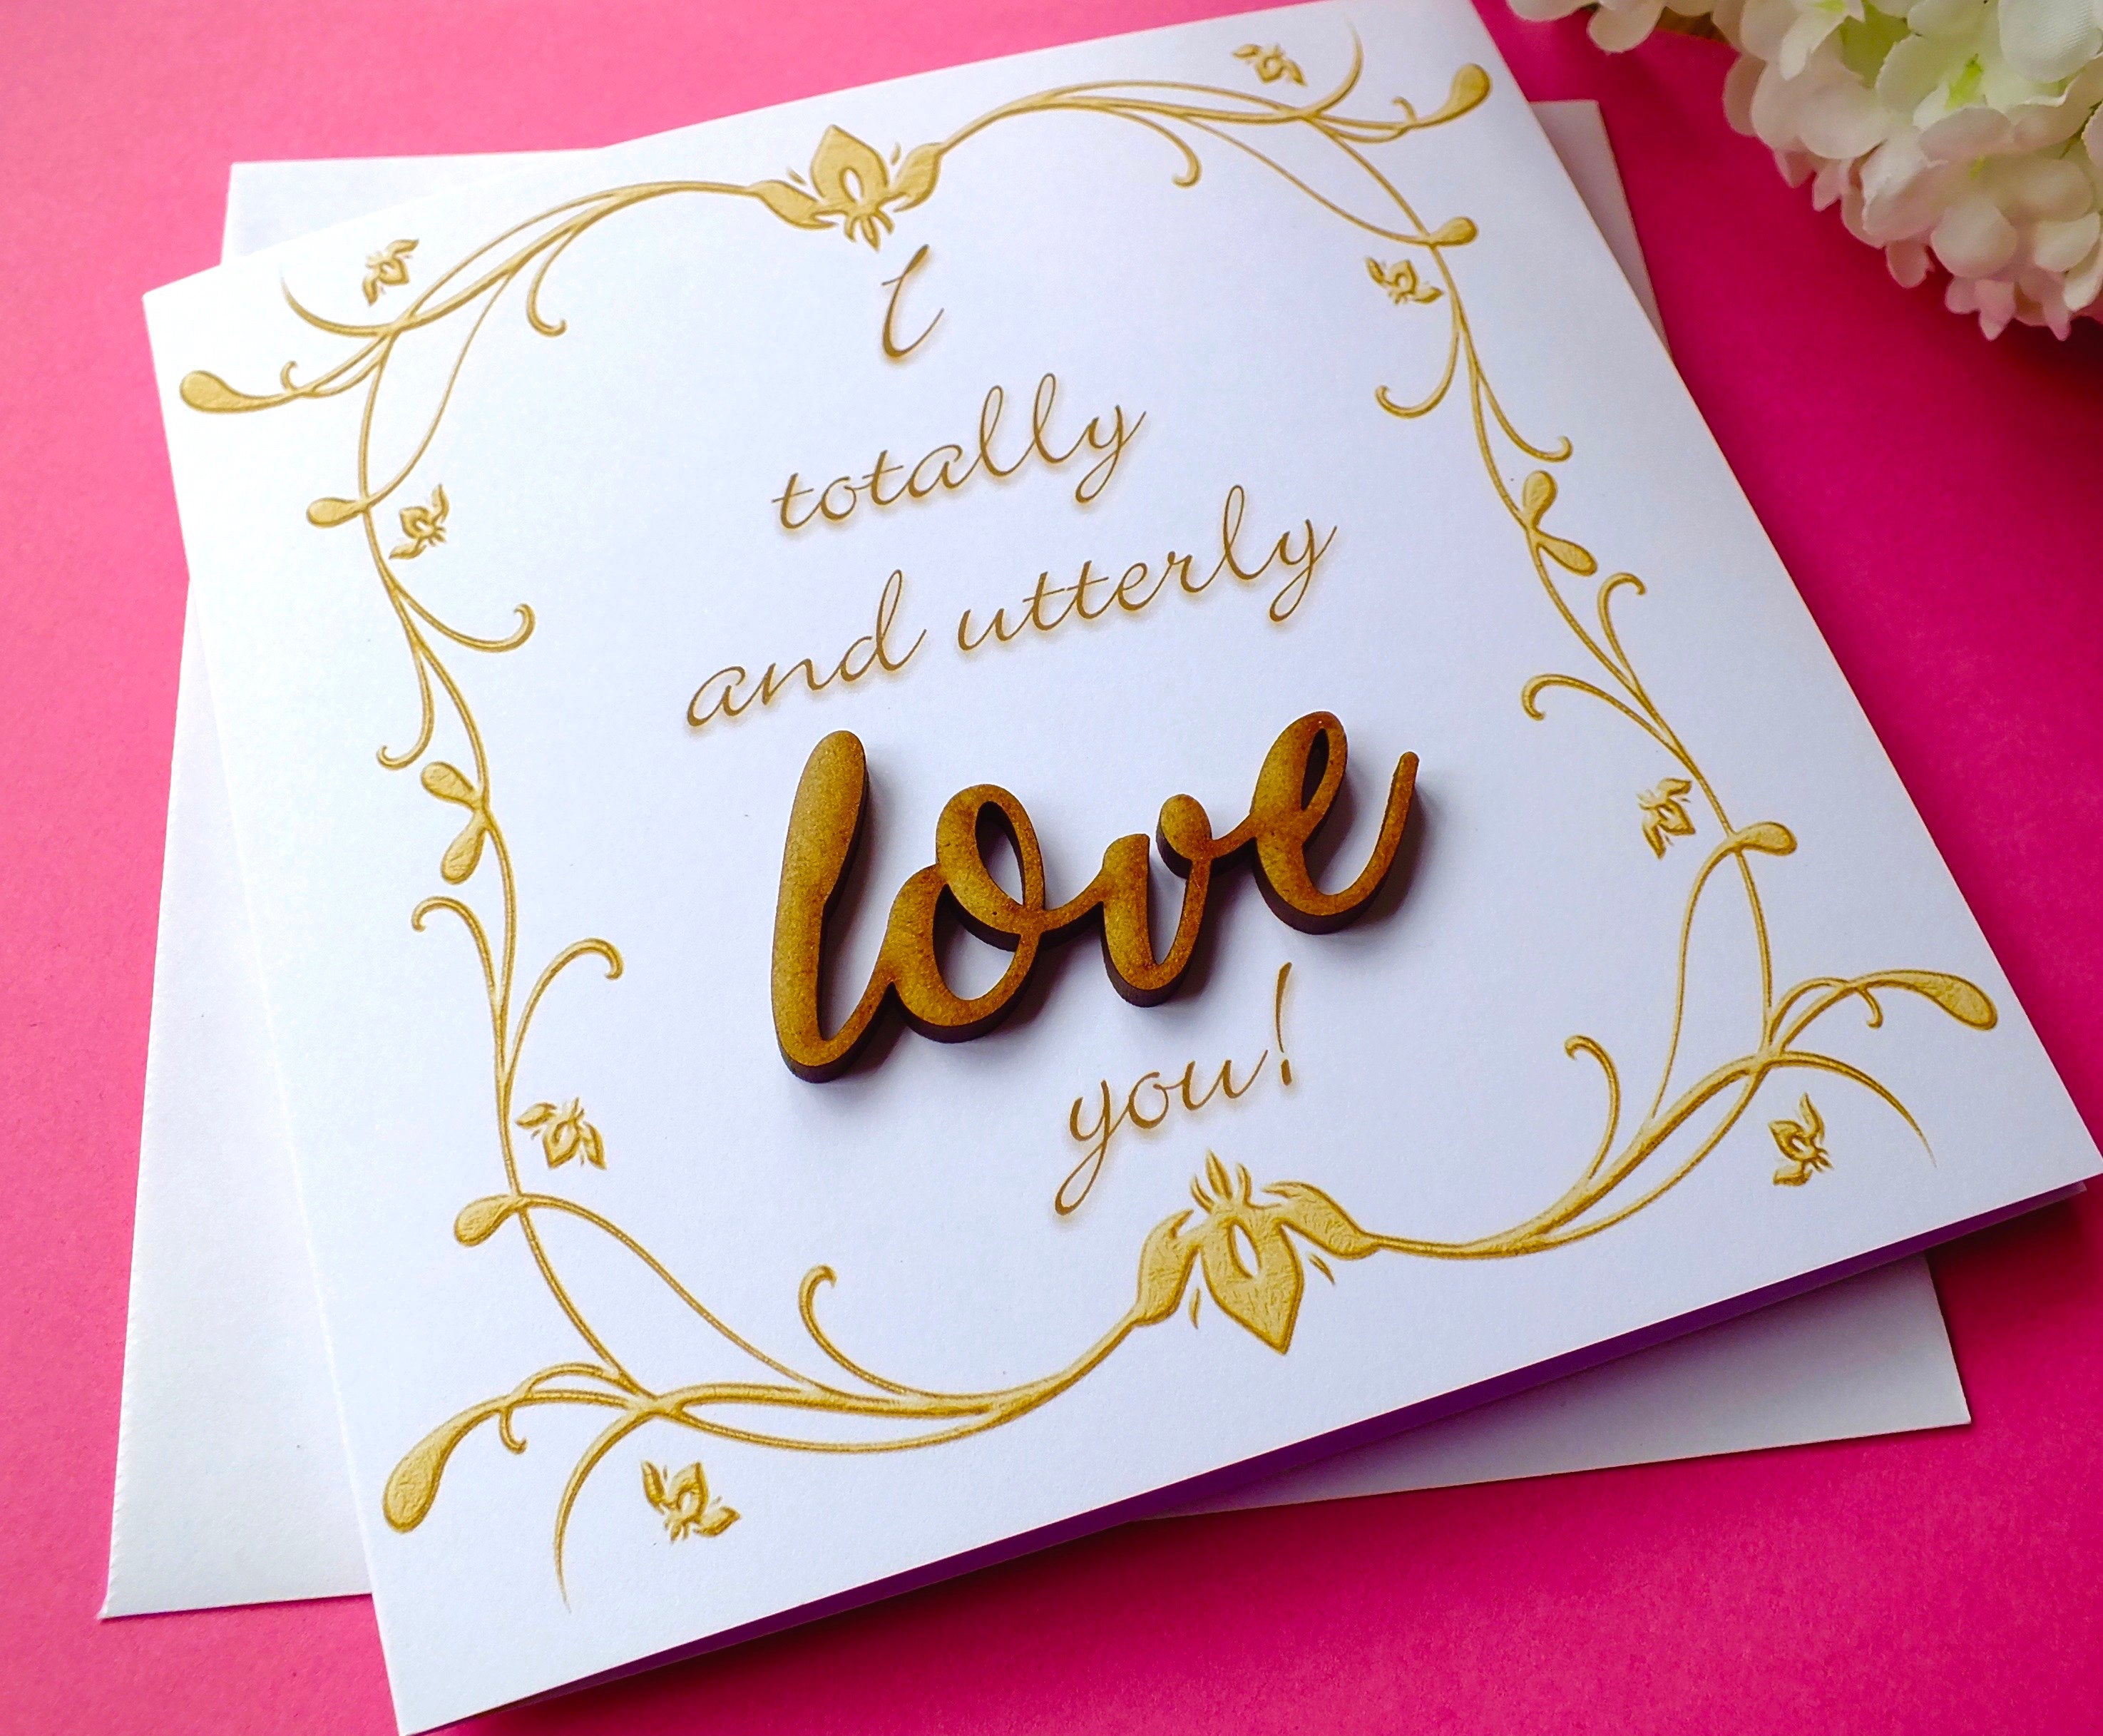 I
totally
and utterly
love
you!